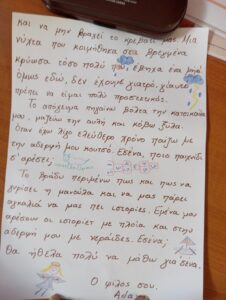 και να μην βραχεί το κρεβάτι μας. Μια
νύχτα που κοιμήθηκα στα βρεγμένα
κρύωσα τόσο πολύ που έβηχα ένα μήνα
όμως εδώ, δεν έχουμε γιατρό, γι'αυτό
πρέπει να είμαι πολύ προσεκτικός.
Το απόγευμα πηγαίνω βόλτα την κατσικούλα
μας, μαζεύω την αυλή και κόβω ξύλα.
Όταν έχω λίγο ελεύθερο χρόνο παίζω με
την αδερφή μου κουτσό. Εσένα, ποιο παιχνίδι
σ'αρέσει;
Το βράδυ περιμένω πως και πως να
γυρίσει η μανούλα και να μας πάρει
αγκαλιά να μας πει ιστορίες. Εμένα μου
αρέσουν οι ιστορίες με πλοία και στην
αδερφή μου με νεράιδες. Εσένα;
Θα ήθελα πολύ να μάθω για σένα.
Ο φίλος σου,